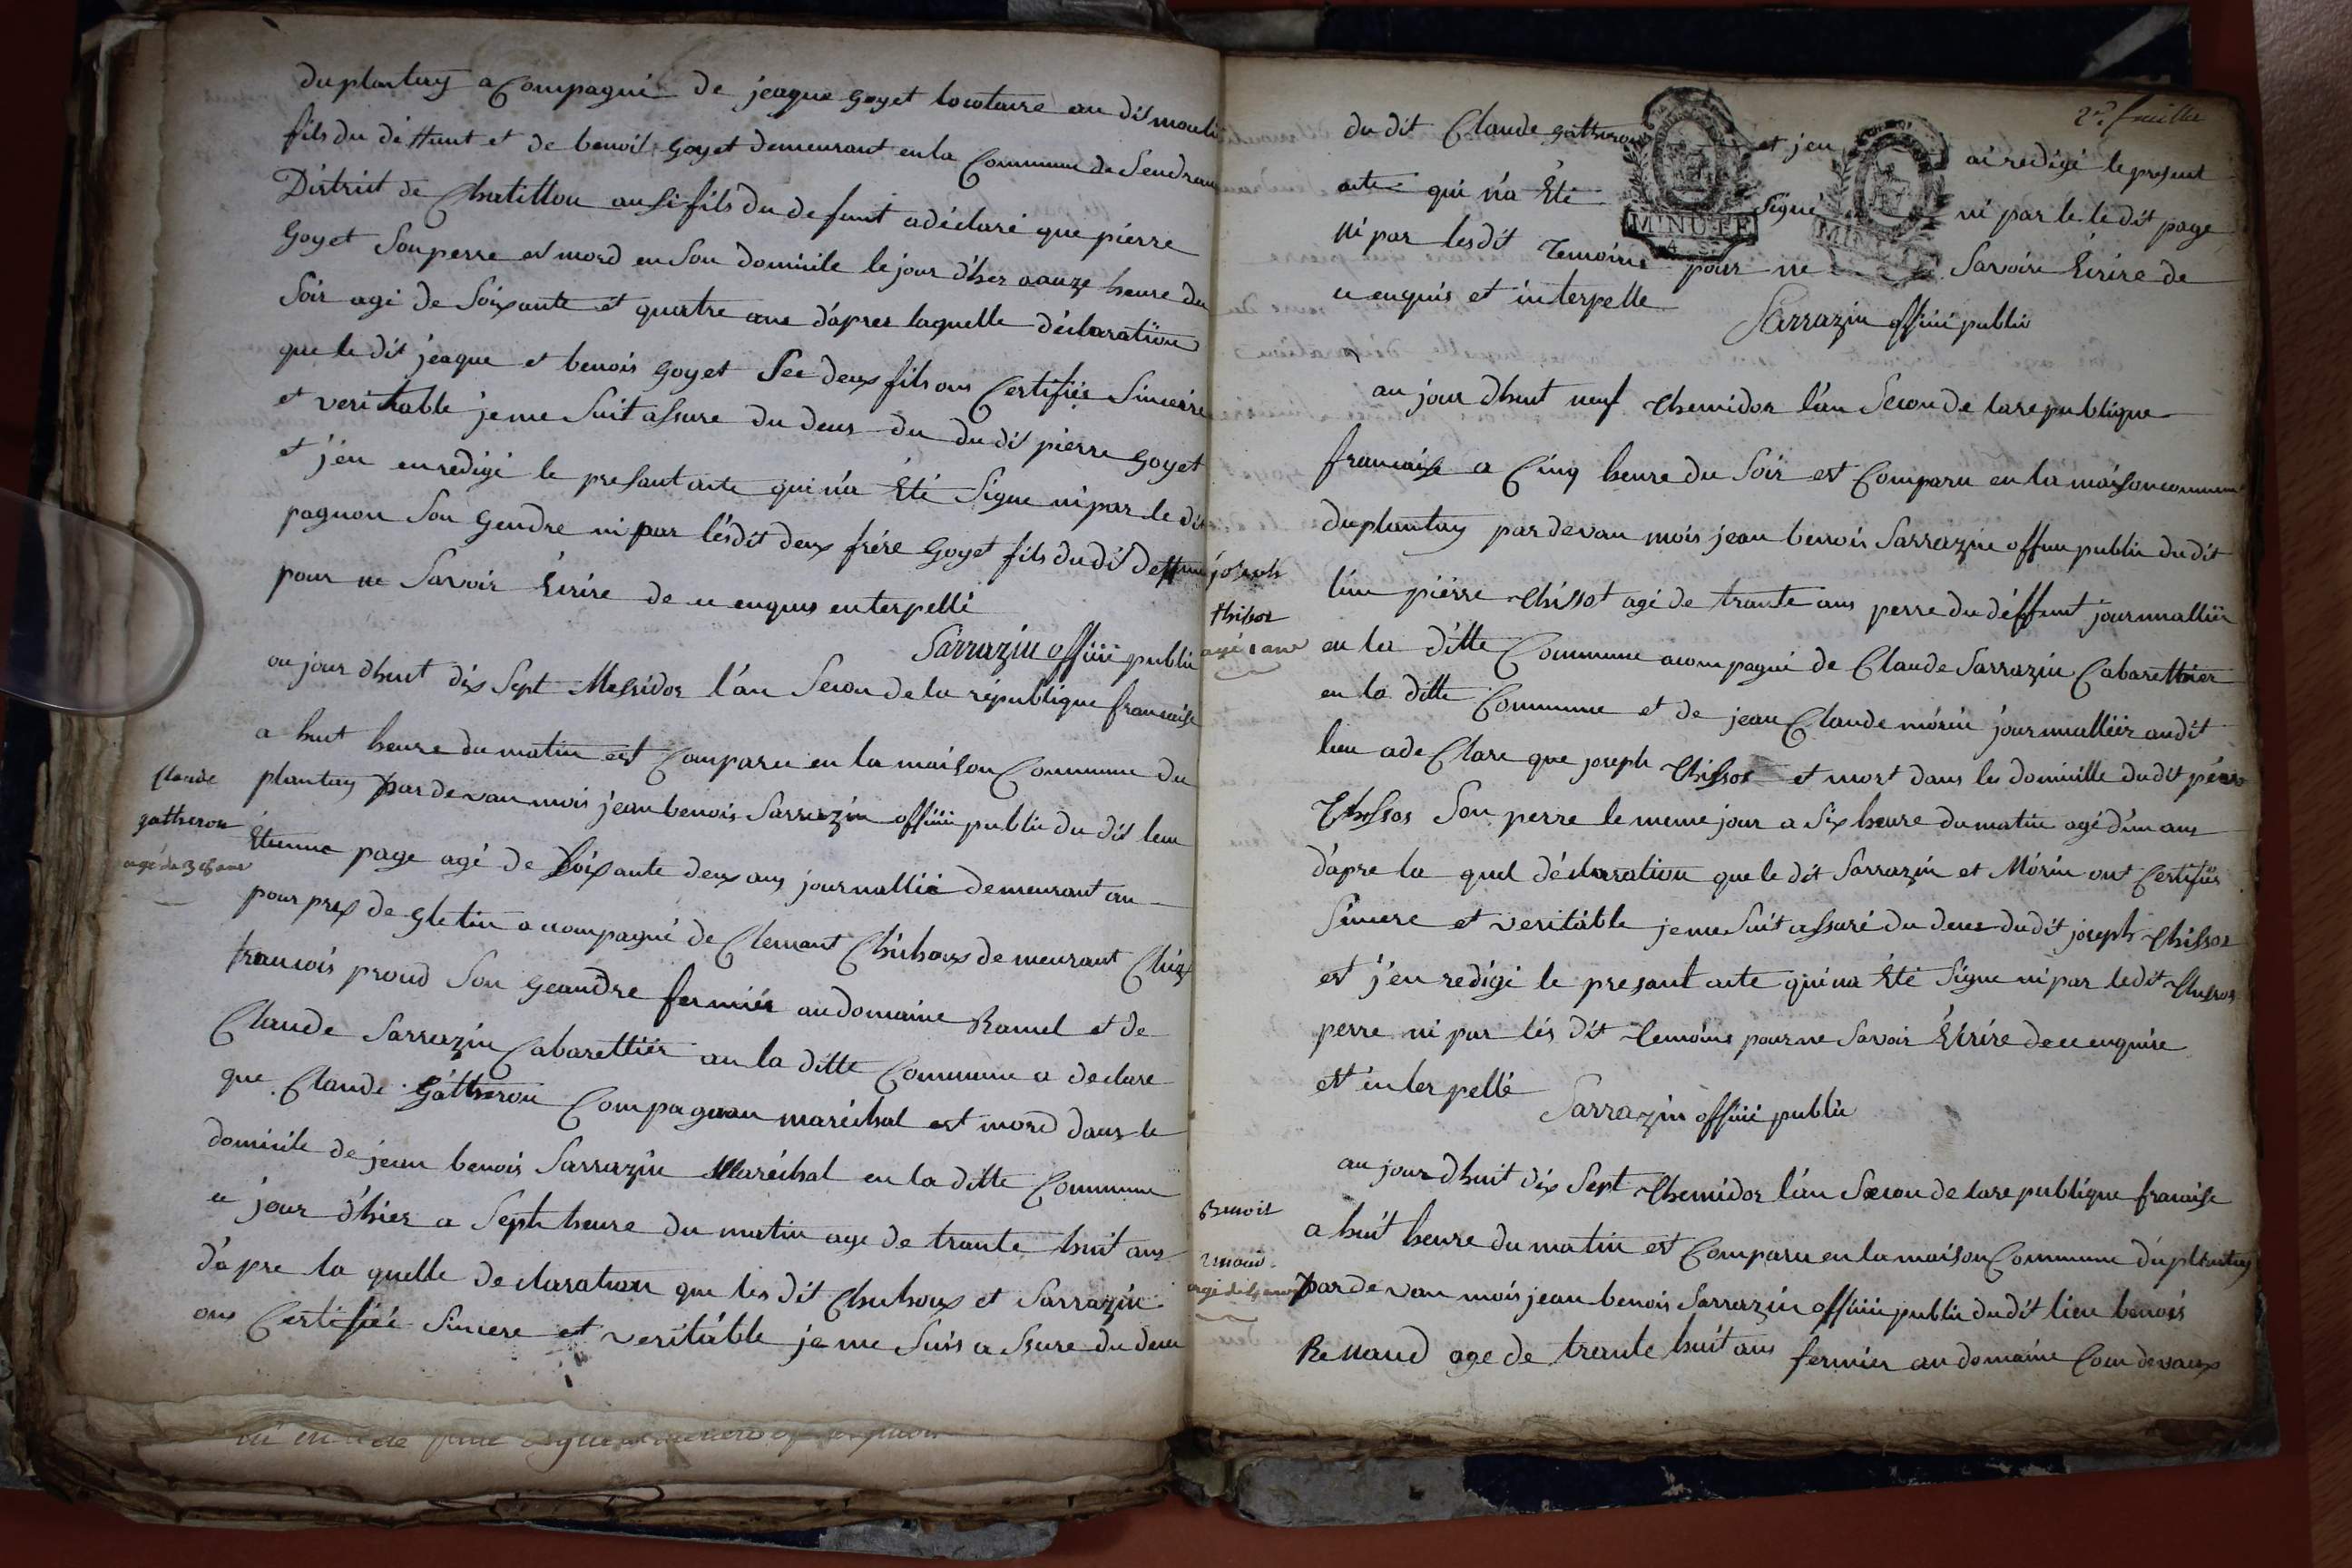 duplantay acompagné de jeaque goyet locotaire au dit mouli
fils du deffunt et de benoit goyet demeurant en la Commune de Sendrans
District de Chatillon ausi fils du defunt a déclaré que pierre
Goyet Son perre et mord en Son domicile le jour d'her a onze heure du
Soir agé de Soixante et quatre ans d'apres laquelle déclaration
que le dit jeaque et benois goyet Ses deux fils ons Certifiée Sincerre
et veritable je me Suit assure du deces du du dit pierre goyet
et j'en en redigé le presant acte qui n'a Été Signe ni par le dit
pagnon Son Gendre ni par lesdit deux frére Goyet fils dudit deffun
pour ne Savoir Écrire de ce enquis enterpellé
Sarrazin officié public
au jour dhuit dix Sept Messidor l'an Secon de la république francaise
a huit heure du matin est Comparu en la maison Commune du
Claude
gatheron
agé de 38 ans
plantay par devan mois jean benois Sarrazin officié public du dit leu
Étienne page agé de Soixante deux ans journallié demeurant au
pour prix de gletin acompagné de Clemant Chuhoux demeurant Chéz
francois proud Son geandre fermiér au domaine Ramel et de
Claude Sarrazin Cabarettiér an la ditte Commune a declare
que Claude Gatheron Compagnon maréchal est mord dans le
domicile de jean benois Sarrazin Maréchal en la ditte Commune
ce jour d'hier a Septh heure du matin age de trante huit ans
d'apre la quelle declaration que les dit Chuhoux et Sarrazin
ons Certifiée Sincere et veritáble je me Suis assure du deces
2e feuille
du dit Claude gatheron et j'en ai redigé le present
acte qui n'a Été Signé ni par le le dit page
ni par lesdit temoins pour ne Savoire Écrire de
ce enquis et interpelle
MINUTE
Sarrazin officié public
au jour dhuit neuf thermidor l'an Secon de la republique
francaise a Cinq heure du Soir est Comparu en la maison commune
duplantay par devan mois jean benois Sarrazin officié public du dit
joseph
thissot
agé 1 ans
lieu piérre thissot agé de trante ans perre du déffunt journalliér
en la ditte Commune acompagné de Claude Sarrazin Cabarettier
en la ditte Commune et de jean Claude mórin journalliér audit
lieu a de Clare que joseph thissot et mort dans le domicille dudit piérre
Thissot Son perre le meme jour a Six heure du matin agé d'un ans
d'apre la quel déclaration que le dit Sarrazin et Mórin ont Certifiés
Sincere et veritáble je me Suit assuré du deces du dit joseph thissot
est j'en redigé le presant acte qui na Été Signe ni par ledit thissot
perre ni par lés dit temoins pour ne Savoir Écrire de ce enquise
et interpellé
Sarrazin officié public
au jour dhuit dix Sept thermidor l'an Secon de la republique francaise
Benoit
renaud
agé de 4 ans
a huit heure du matin est Comparu en la maison Commune duplantay
par devan mois jean benois Sarrazin officié public dudit lieu benois
Renaud age de trante huit ans fermier au domaine Cour devaux